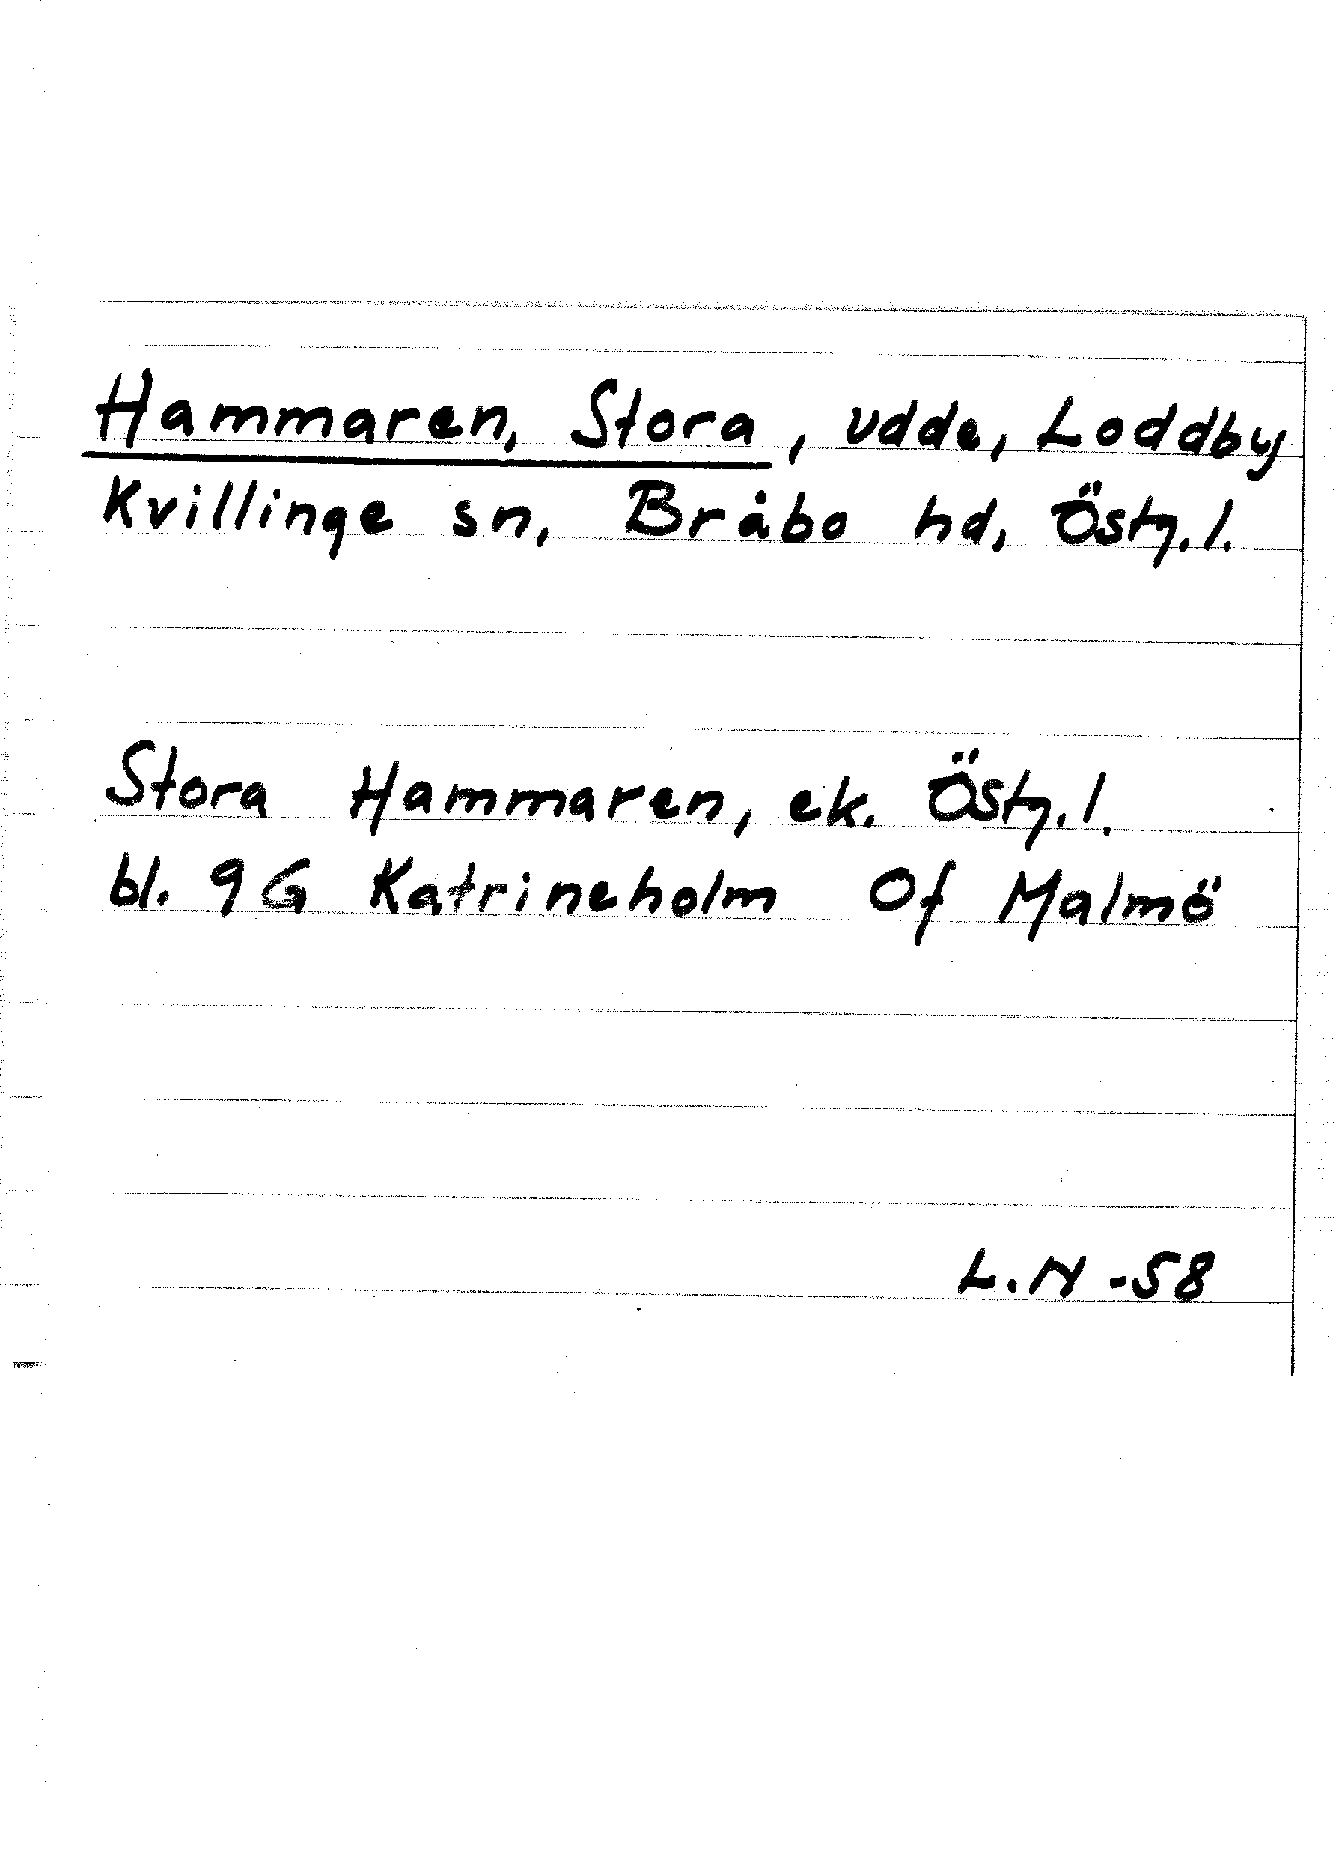 Hammaren, Stora, udde, Loddby
Kvillinge sn, Bråbo hd, Östg.l.
Stora Hammaren, ek. Östg.l.
bl. 9G Katrineholm Of Malmö
L.N -58